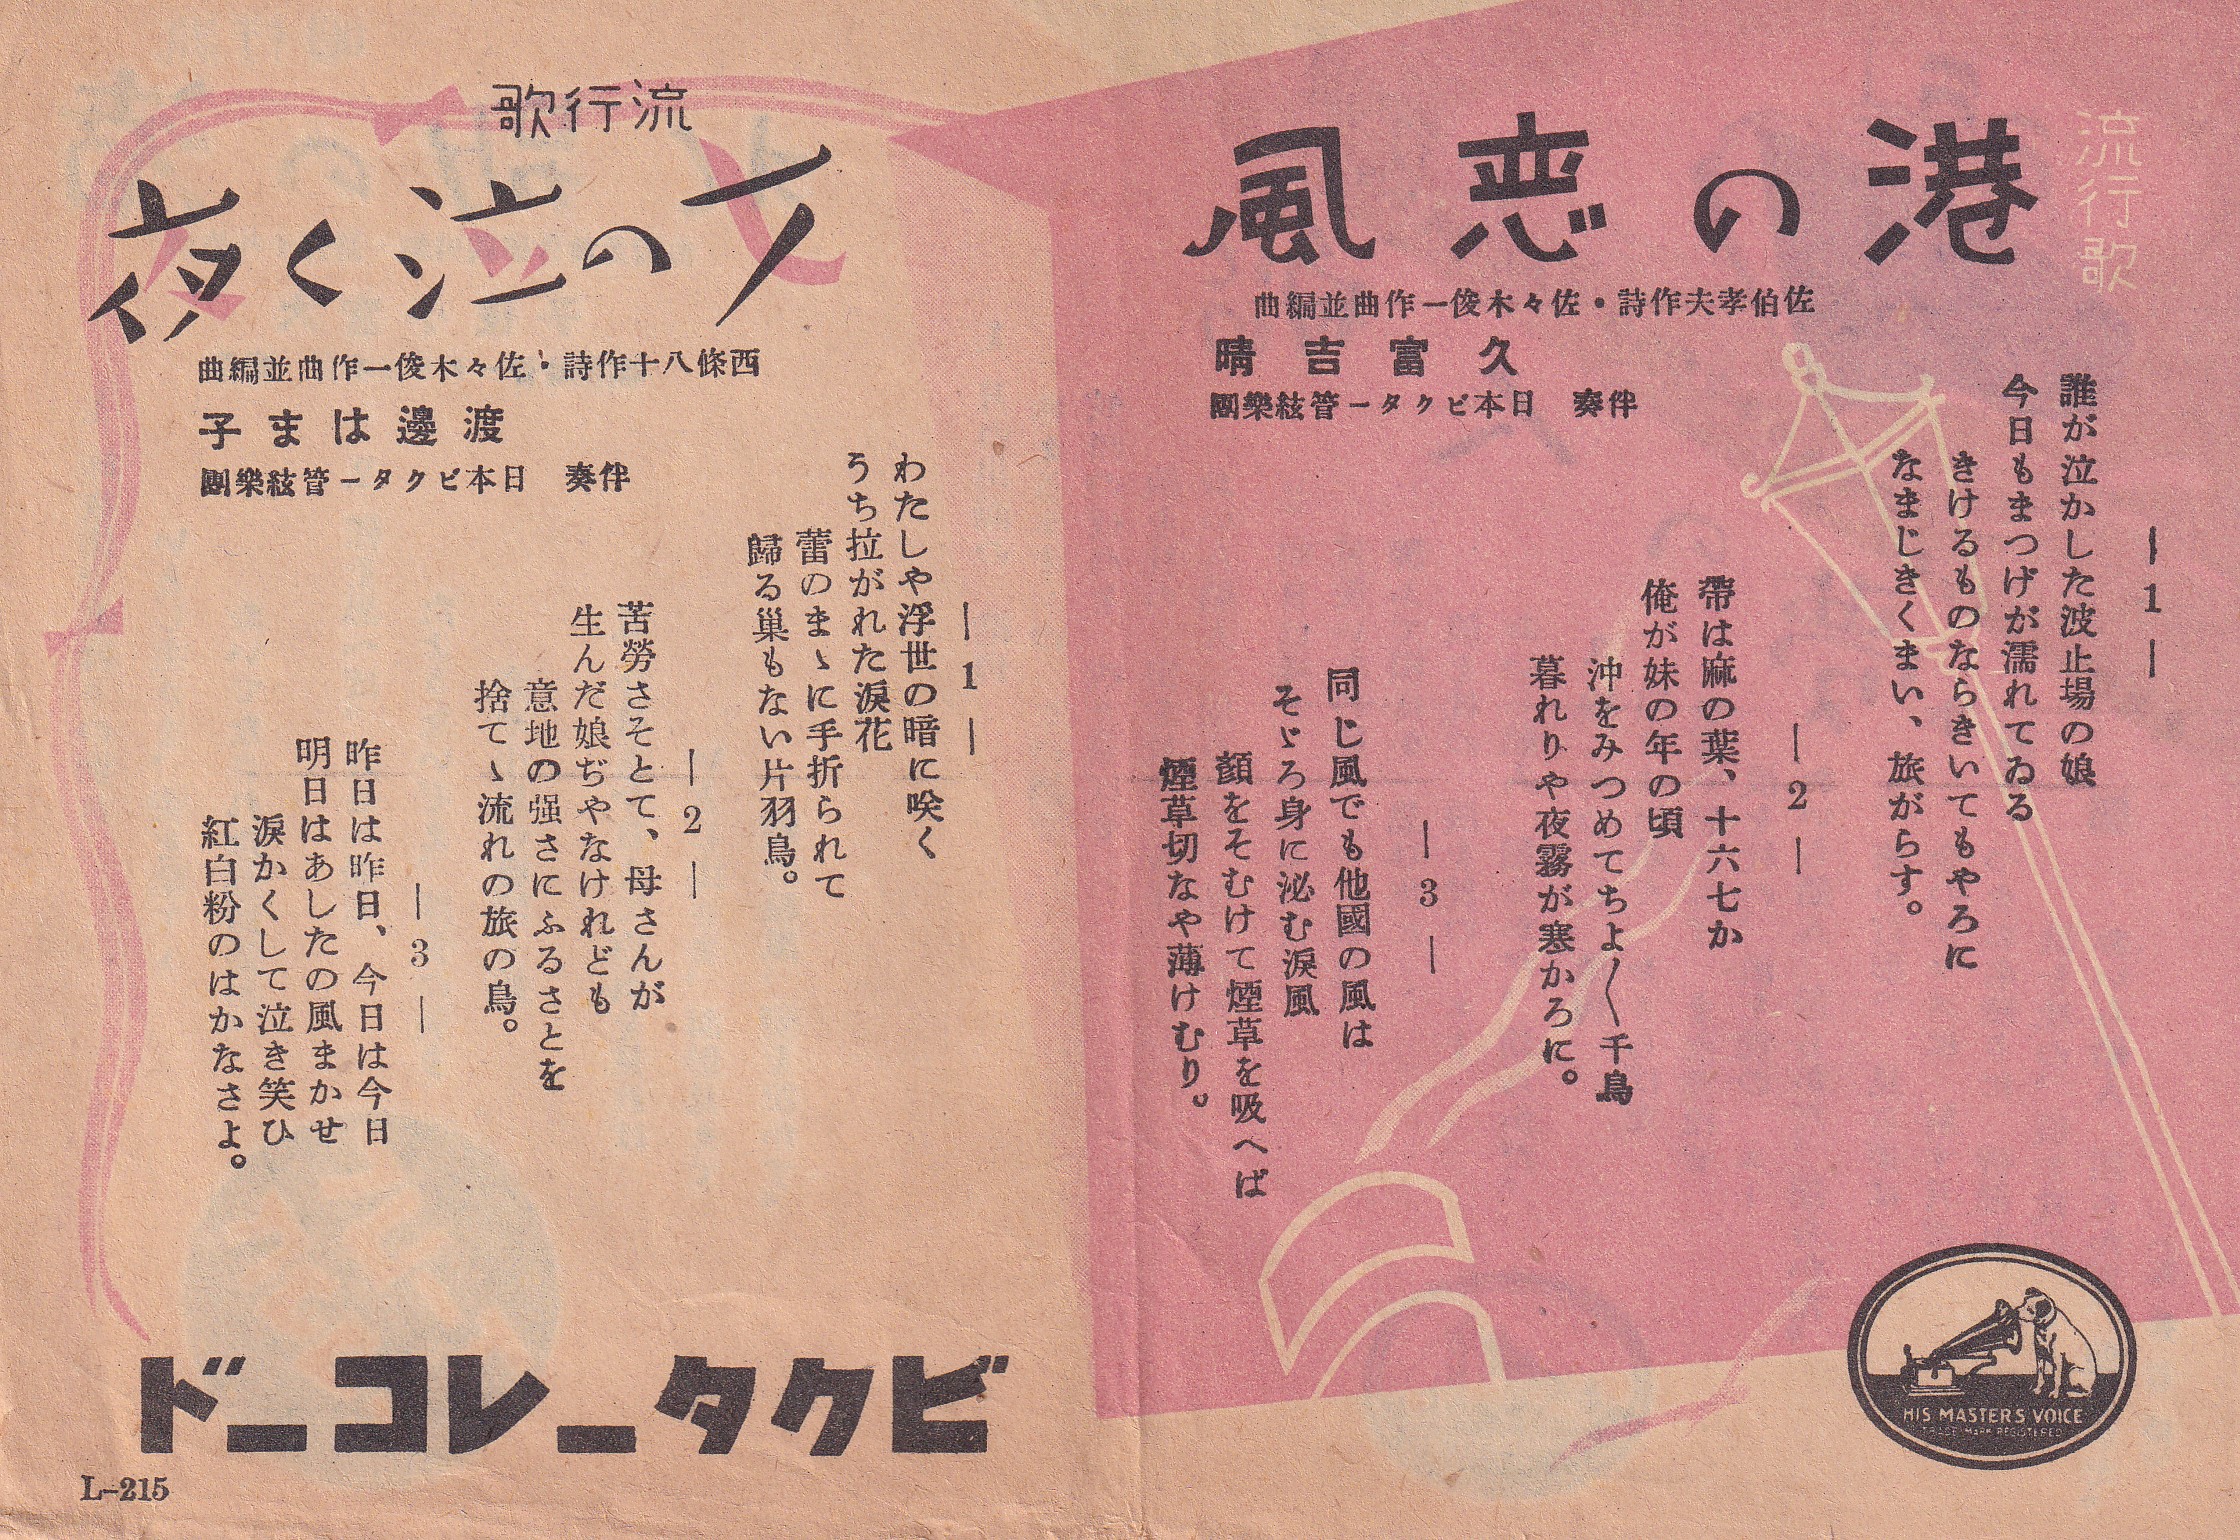 流行歌
港の恋風
佐伯孝夫作詩・佐々木俊一作曲並編曲
久富吉晴
伴奏 日本ビクター管絃樂團
―1―
誰が泣かした波止場の娘
今日もまつげが濡れてゐる
きけるものならきいてもやろに
なまじきくまい、旅がらす。
―2―
帶は麻の葉、十六七か
俺が妹の年の頃
沖をみつめてちよ〱千鳥
暮れりや夜霧が寒かろに。
―3―
同じ風でも他國の風は
そゞろ身に泌む涙風
顔をそむけて煙草を吸へば
煙草切なや薄けむり。
流行歌
女の泣く夜
西條八十作詩・佐々木俊一作曲並編曲
渡邊はま子
伴奏 日本ビクター管絃樂團
―1―
わたしや浮世の暗に咲く
うち拉がれた涙花
蕾のまゝに手折られて
歸る巢もない片羽鳥。
―2―
苦勞さそとて、母さんが
生んだ娘ぢやなけれども
意地の强さにふるさとを
捨てゝ流れの旅の鳥。
―3―
昨日は昨日、今日は今日
明日はあしたの風まかせ
涙かくして泣き笑ひ
紅白粉のはかなさよ。
ビクターレコード
HIS MASTER'S VOICE
TRADE MARK REGISTERED
L-215